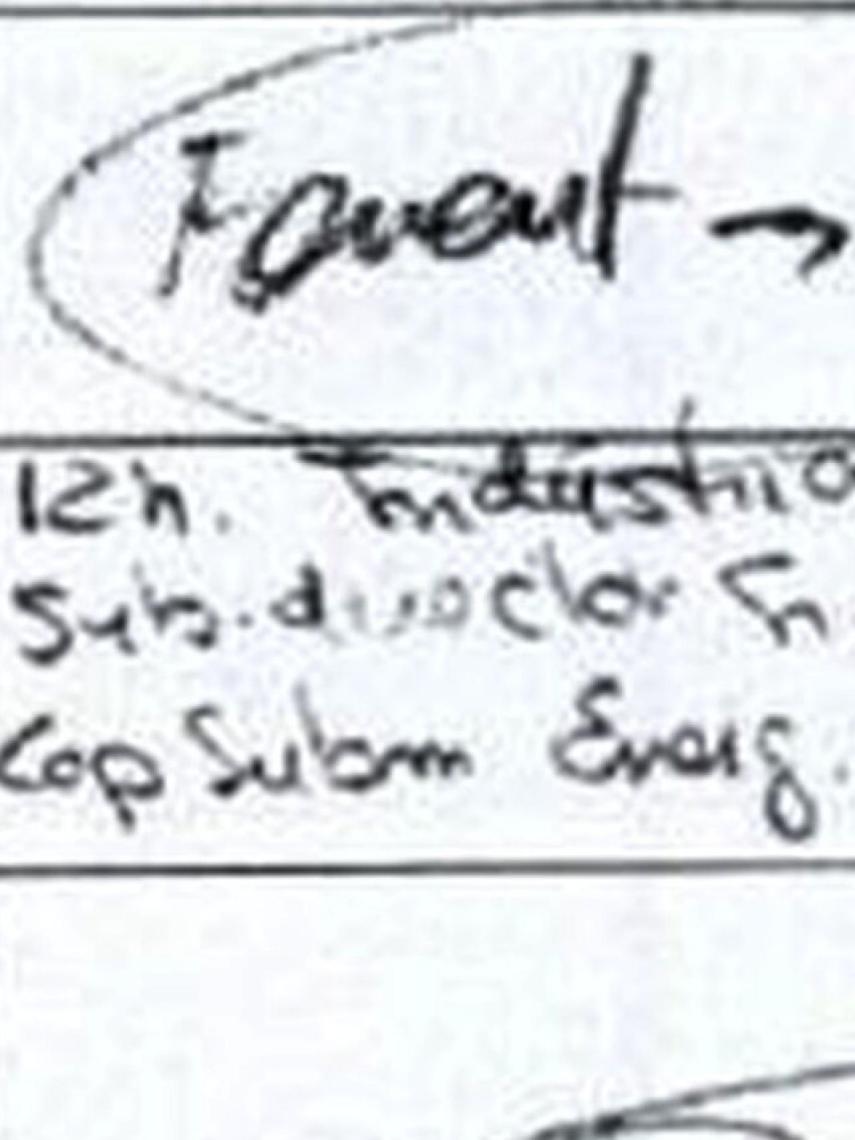 Foment →
12h. Indústria
Sub.director Gn.
Cap Subm Energ.